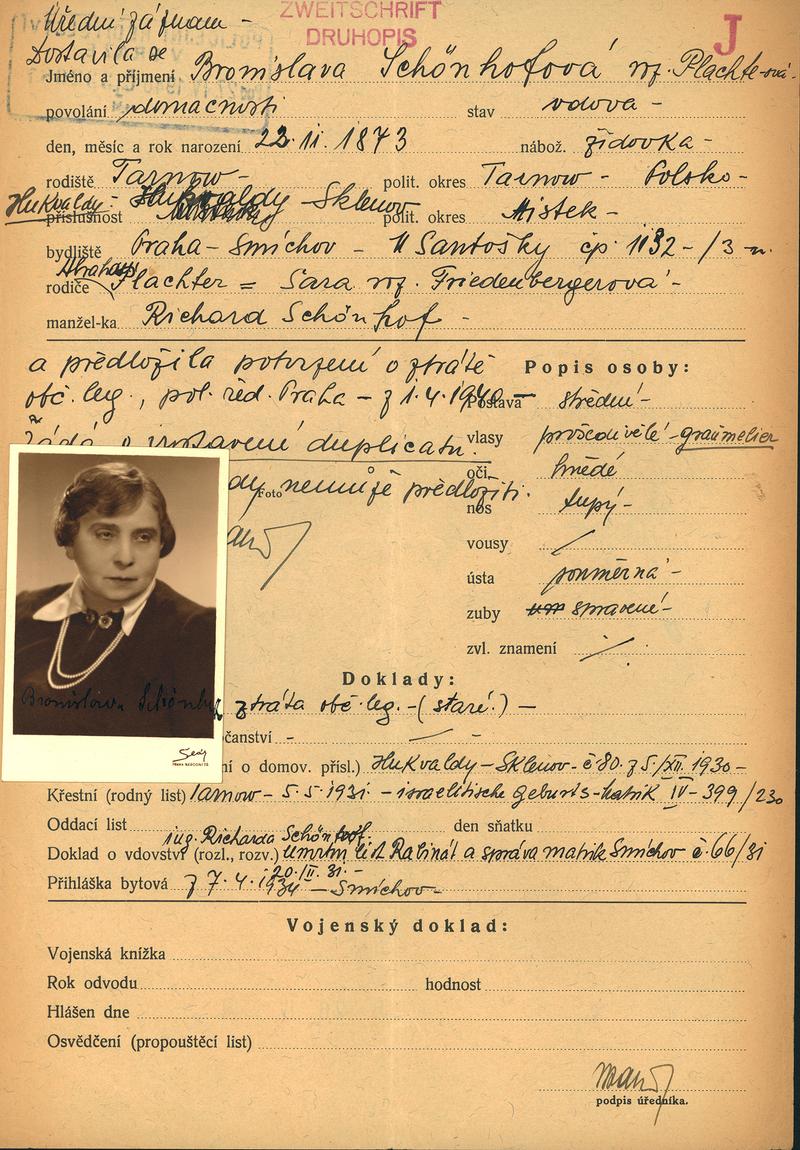 Úřední záznam -
ZWEITSCHRIFT
DRUHOPIS
J
Dostavila se
Jméno a příjmení Bronislava Schönhofová roz. Plachte-ová-
povolání domácnosti stav vdova -
den, měsíc a rok narození 22. 11. 1873 nábož. židovka -
rodiště Tarnow - polit. okres Tarnow - Polsko -
Hukvaldy - příslušnost Hukvaldy - Sklenov polit. okres Místek -
bydliště Praha - Smíchov - U Santošky čp 1132 - /3
Abraham
rodiče Plachter = Sara roz. Friedenbergerová -
manžel-ka Richard Schönhof -
a předložila potvrzení o ztrátě
obč. leg., pol. řed. Praha - z 1. 4. 1940 -
žádá o vystavení duplicatu.
nemůže předložiti.
Foto
Popis osoby:
Postava střední -
vlasy prošedivělé - graumelier
oči hnědé
nos tupý -
vousy /
ústa poměrná -
zuby spravené -
zvl. znamení ./.
Bronislava Schönhof
Doklady:
ztráta obč. leg. - (staré.) -
čanství - -
ní o domov. přísl.) Hukvaldy - Sklenov - č 80. z 5./XII. 1930 -
Křestní (rodný list) Tarnow - 5. 5. 1931. - israelitische Geburts-Matrik IV - 399/230
Oddací list den sňatku
ing. Richarda Schönhof.
Doklad o vdovství (rozl., rozv.) Úmrtní list Rabinát a správa matrik Smíchov č. 66/31
20./II. 31. -
Přihláška bytová z 7. 4. 1934 - Smíchov -
Vojenský doklad:
Vojenská knížka
Rok odvodu hodnost
Hlášen dne
Osvědčení (propouštěcí list)
podpis úředníka.